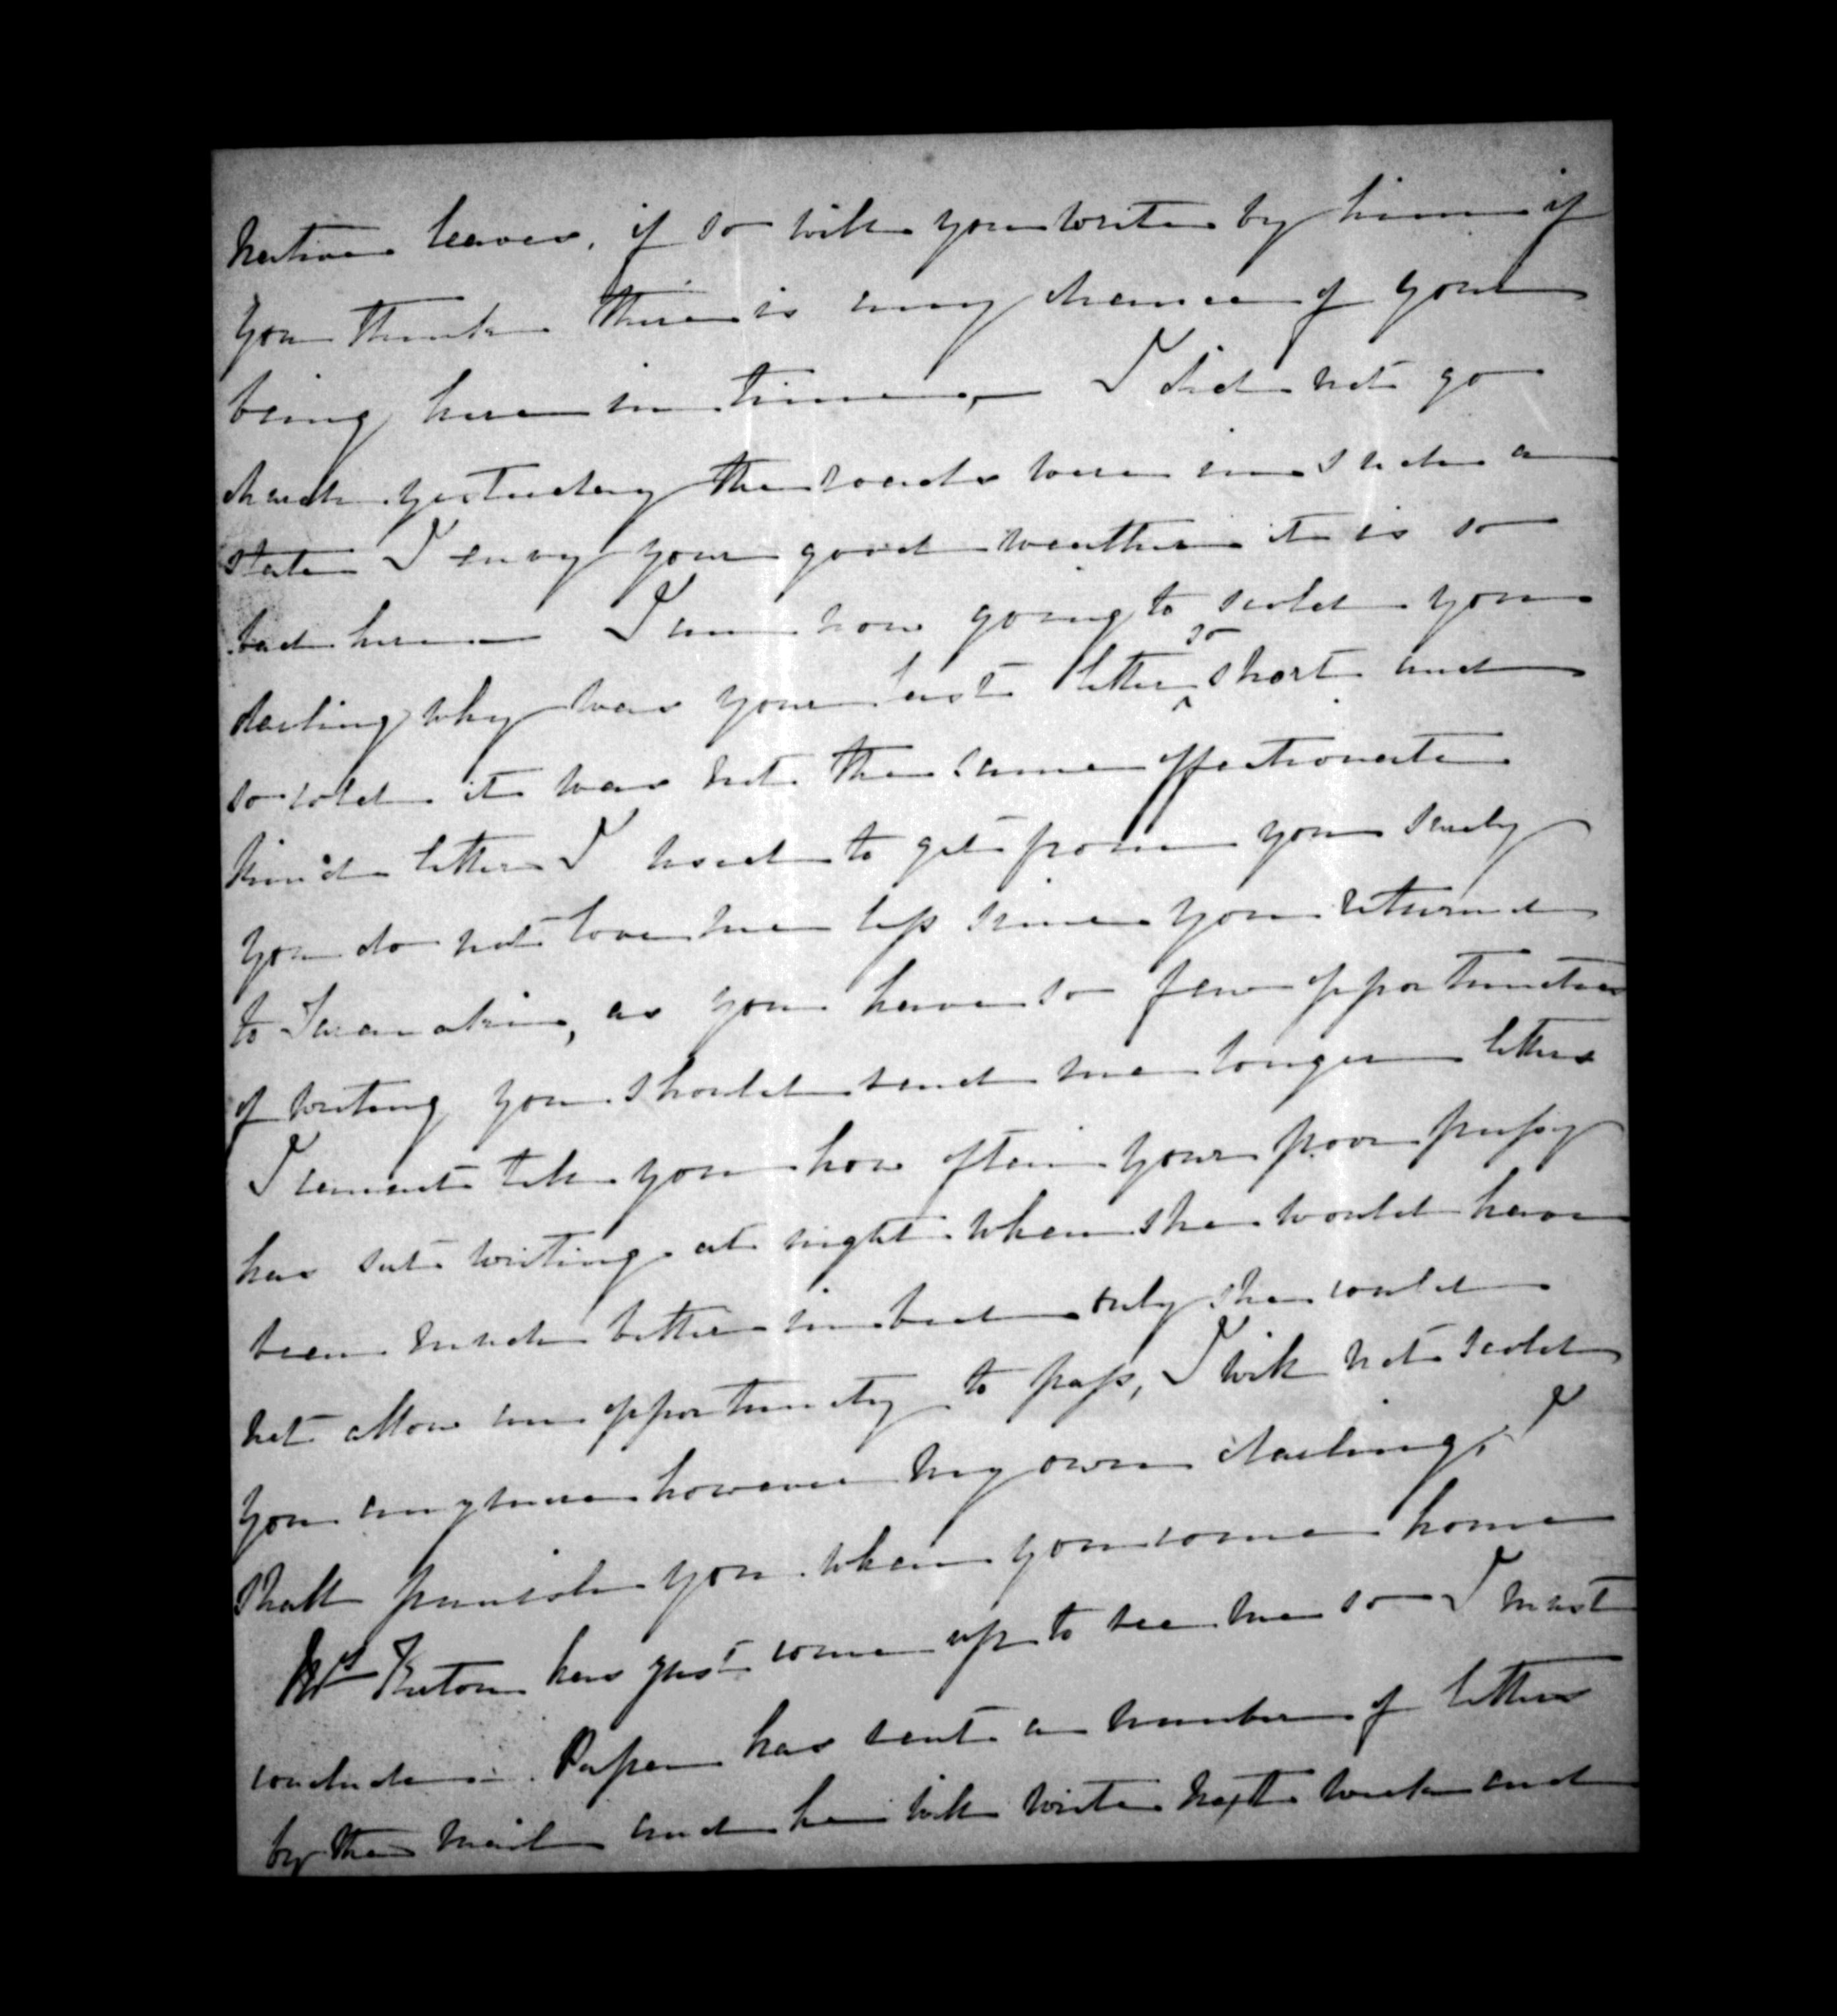 native leaves, if so will you write by him if
you think there is any chance of your
being here in time, — I did not go
church yesterday the roads were in such a
state I envy your good weather it is so
bad here — I am now going to scold you
darling why was your last letter so short and
so cold it was not the same affectionate
kind letter I used to get from you surely
you do not love me less since you returned
to Taranaki, as you have so few opportunities
of writing you should send me longer letters
I cannot tell you how often your poor pussy
has sat writing at night when she would have
been much better in bed only she could
not allow an opportunity to pass, I will not scold
you any more however my own darling, I
shall punish you when you come home
has just come up to see me so I must
conclude. Papa has sent a number of letters
by the mail and he will write next week and